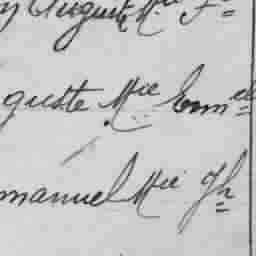 Auguste Mie F
guste Mie Emel
manuel Mie Jh